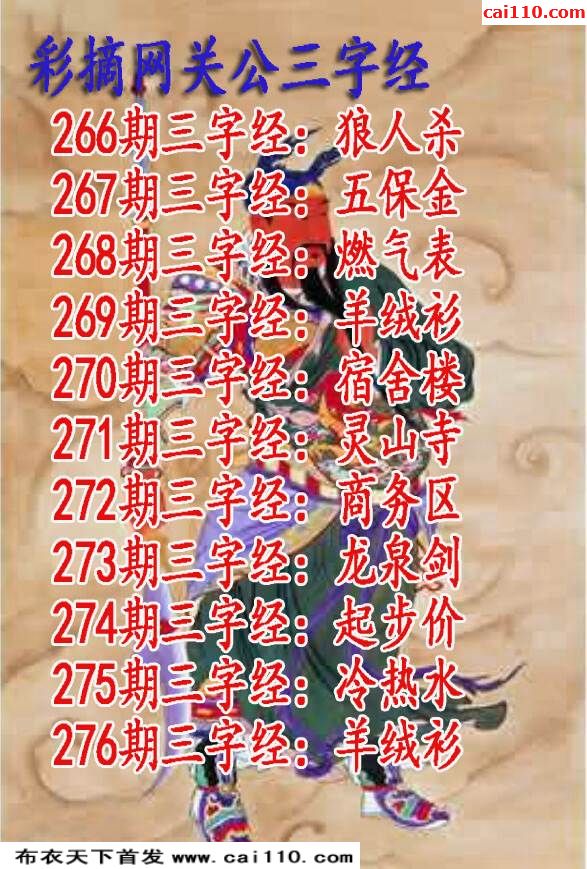 cai110.com
彩摘网关公三字经
266期三字经：狼人杀
267期三字经：五保金
268期三字经：燃气表
269期三字经：羊绒衫
270期三字经：宿舍楼
271期三字经：灵山寺
272期三字经：商务区
273期三字经：龙泉剑
274期三字经：起步价
275期三字经：冷热水
276期三字经：羊绒衫
布衣天下首发 www.cai110.com